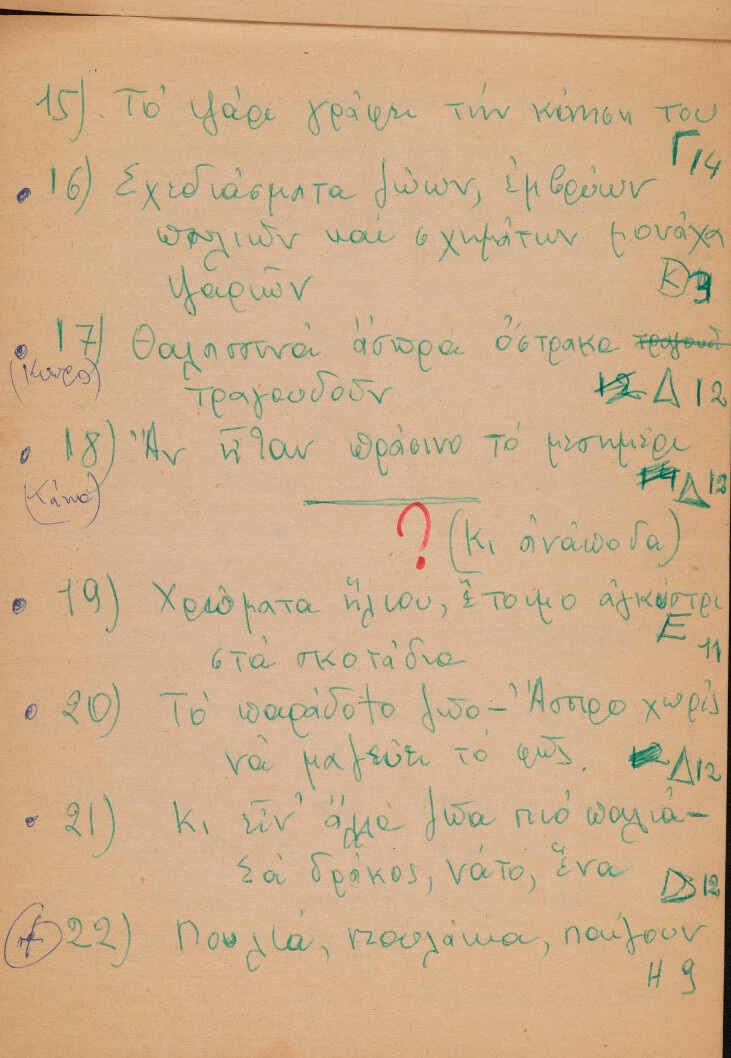 15) Τό ψάρι γράφει τήν κίνηση του
Γ 14
• 16) Σχεδιάσματα ζώων, ἐμβρύων
πουλιῶν καί σχημάτων μονάχα
ψαριῶν
Κ 9
• 17) Θαλασσινά ἄσπρα ὄστρακα τραγουδ
(Καιρο) τραγουδοῦν 12 Δ 12
• 18) Ἄν ἦταν πράσινο τό μεσημέρι
14 Δ 12
? (Κι ἀνάποδα)
• 19) Χρώματα ἥλιου, ἕτοιμο ἀγκίστρι
Ε 11
στά σκοτάδια
• 20) Τό παράδοξο ζῶο - Ἄσπρο χωρίς
νά μαζεύει τό φῶς. 12 Δ 12
• 21) Κι εἶν' ἄλλα ζῶα πιό παλιά -
Σά δράκος, νάτο, ἕνα
Δ 12
+ 22) Πουλιά, πουλάκια, παίζουν
Η 9